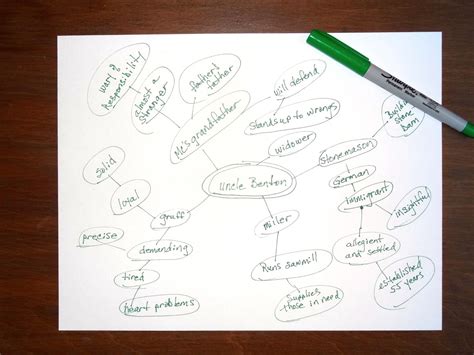 wary of
Responsibility
almost a
stranger
father's
father
MC's grandfather
will defend
Stands up to wrongs
widower
Stonemason
Builds
stone
Dam
German
immigrant
insightful
allegient
and settled
established
55 years
Uncle Benton
miller
Runs sawmill
supplies
those in need
gruff
loyal
solid
demanding
precise
tired
heart problems
Sharpie